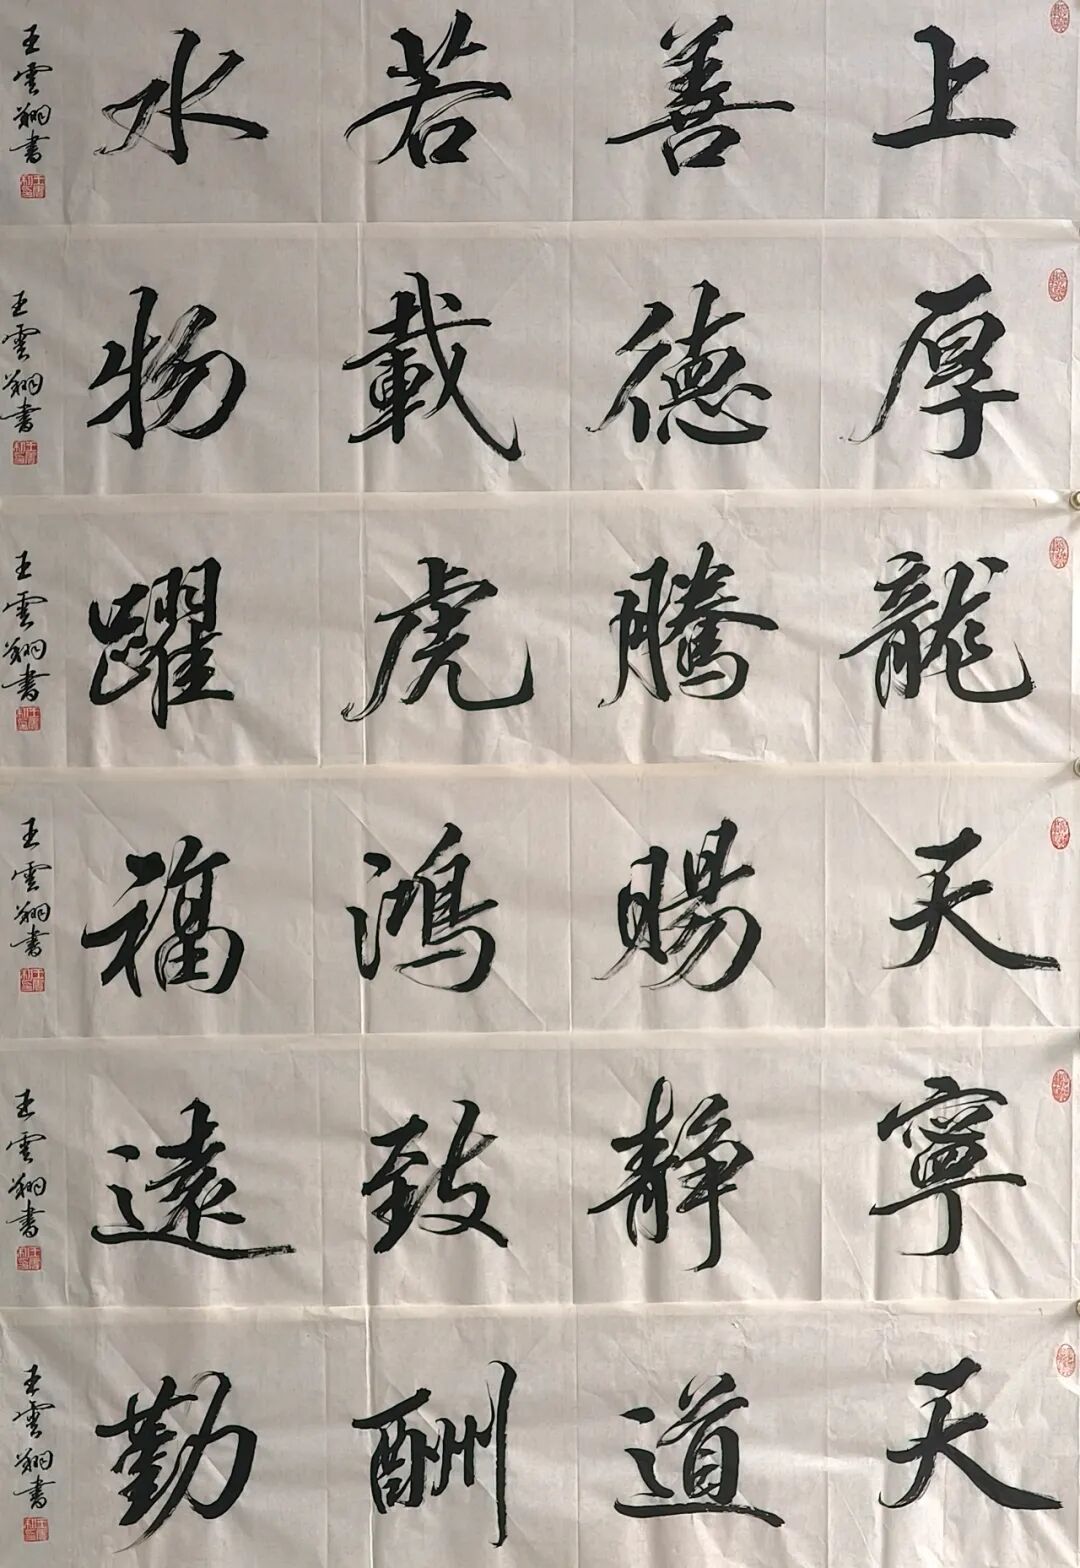 上善若水
王雲翔書
厚德載物
王雲翔書
龍騰虎躍
王雲翔書
天賜鴻福
王雲翔書
寧靜致遠
王雲翔書
天道酬勤
王雲翔書